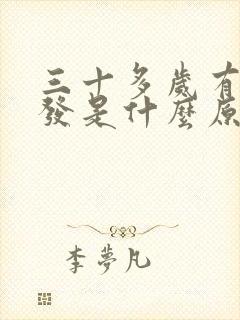 三十多歲有
發是什麼原
李夢凡